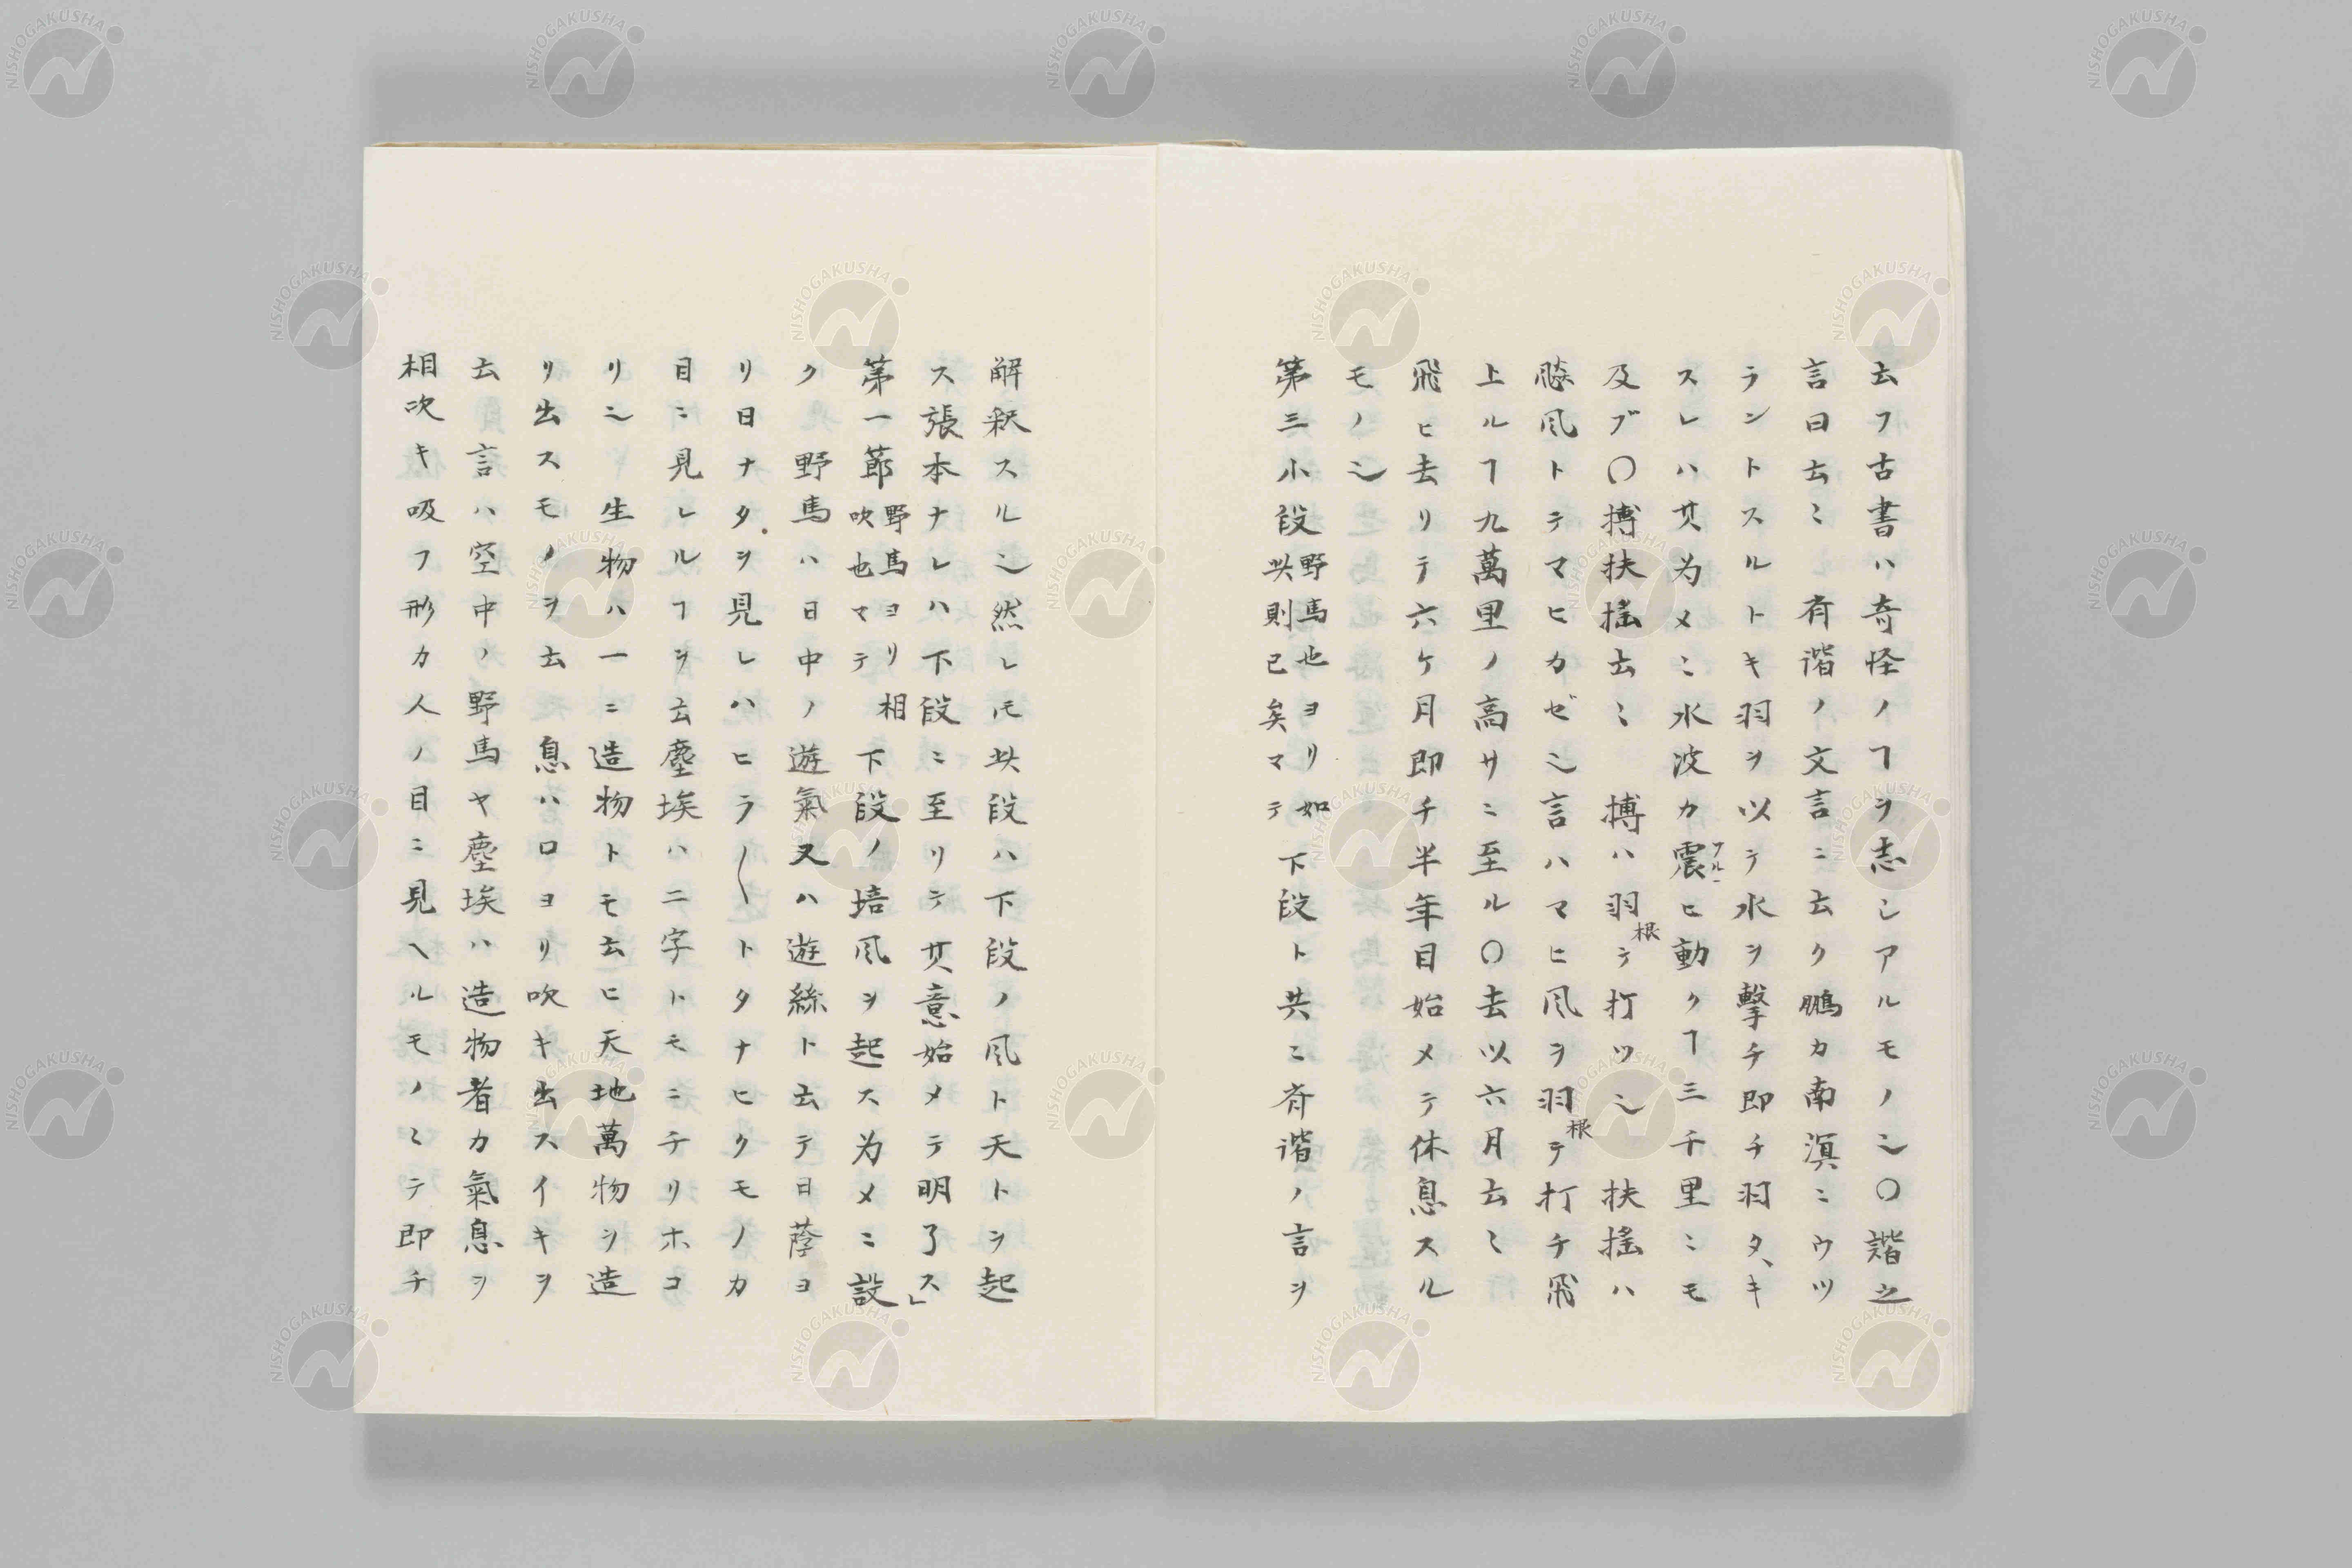 去フ古書ハ奇怪ノヿヲ志シアルモノ𪜈〇諧之
言曰云〻 有諧ノ文言ニ云ク鵬カ南溟ニウツ
ラントスルトキ羽ヲ以テ水ヲ擊チ即チ羽タヽキ
スレハ其为メニ水波カ震ヒ動クヿ三千里ニモ
フルー
及ブ〇摶扶揺云〻 摶ハ羽根テ打ツ也 扶揺ハ
飈風トテマヒカゼ也言ハマヒ風ヲ羽根テ打チ飛
上ルヿ九萬里ノ高サニ至ル〇去以六月云〻
飛ヒ去リテ六ケ月即チ半年目始メテ休息スル
モノ也
第三小段 野馬也ヨリ如 此則已矣マテ 下段ト共ニ斉諧ノ言ヲ
解釈スル也然レ𪜈此段ハ下段ノ風ト天トヲ起
ス張本ナレハ下段ニ至リテ其意始メテ明了ス」
第一節 野馬ヨリ相 吹也マテ 下段ノ培風ヲ起ス为メニ設
ク 野馬ハ日中ノ遊氣又ハ遊絲ト云テ日蔭ヨ
リ日ナタヲ見レハヒラ〱トタナヒクモノカ
目ニ見レルヿヲ云塵埃ハ二字トモニチリホコ
リ也 生物ハ一ニ造物トモ云ヒ天地萬物ヲ造
リ出スモノヲ云 息ハ口ヨリ吹キ出スイキヲ
云 言ハ空中ノ野馬ヤ塵埃ハ造物者カ氣息ヲ
相次キ吸フ形カ人ノ目ニ見ヘルモノミテ即チ
NISHOGAKUSHA